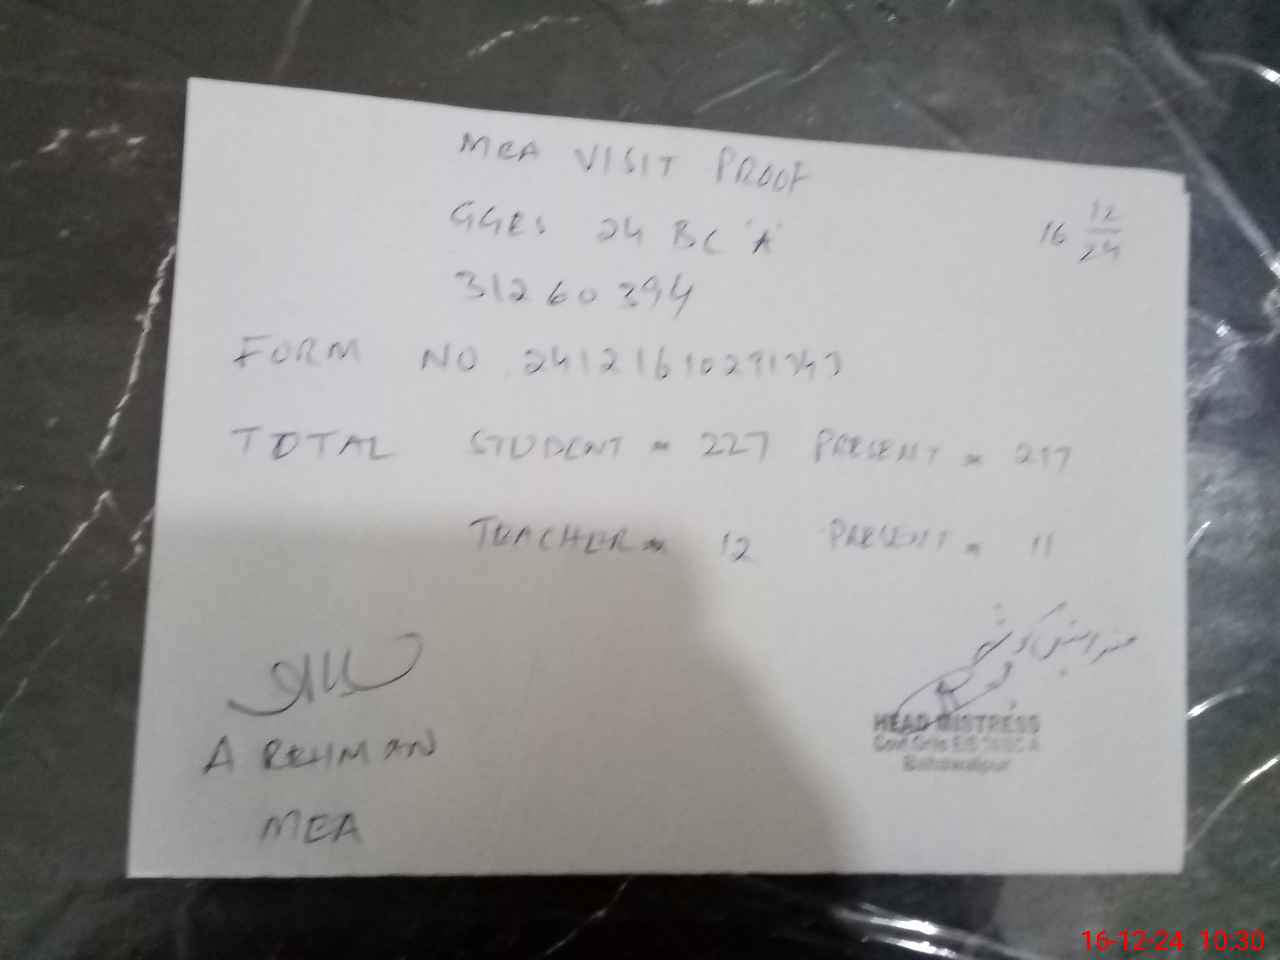 MEA VISIT PROOF
GGES 24 BC 'A'
16 12/24
31260394
FORM NO. 24121610291343
TOTAL STUDENT = 227 PRESENT = 217
TEACHER = 12 PRESENT = 11
A REHMAN
MEA
HEAD MISTRESS
Govt Girls E/S
Bahawalpur
16-12-24 10:30